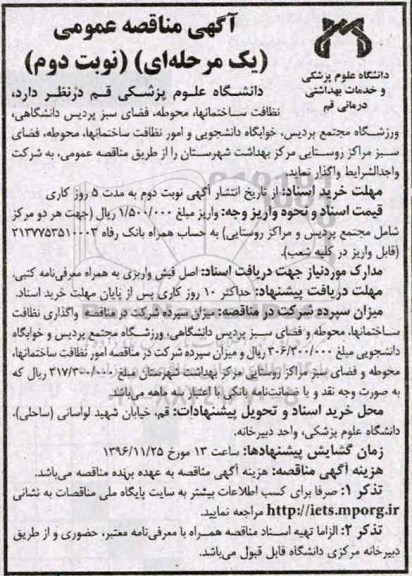 آگهی مناقصه عمومی
(یک مرحله‌ای) (نوبت دوم)
دانشگاه علوم پزشکی
و خدمات بهداشتی
درمانی قم
دانشگاه علوم پزشکی قم درنظر دارد،
نظافت ساختمانها، محوطه، فضای سبز پردیس دانشگاهی،
ورزشگاه مجتمع پردیس، خوابگاه دانشجویی و امور نظافت ساختمانها، محوطه، فضای
سبز مراکز روستایی مرکز بهداشت شهرستان را از طریق مناقصه عمومی، به شرکت
واجدالشرایط واگذار نماید.
مهلت خرید اسناد: از تاریخ انتشار آگهی نوبت دوم به مدت ۵ روز کاری
قیمت اسناد و نحوه واریز وجه: واریز مبلغ ۱/۵۰۰/۰۰۰ ریال (جهت هر دو مرکز
شامل مجتمع پردیس و مراکز روستایی) به حساب همراه بانک رفاه ۲۱۳۷۷۵۳۵۱۰۰۰۳
(قابل واریز در کلیه شعب).
مدارک موردنیاز جهت دریافت اسناد: اصل فیش واریزی به همراه معرفی‌نامه کتبی.
مهلت دریافت پیشنهاد: حداکثر ۱۰ روز کاری پس از پایان مهلت خرید اسناد.
میزان سپرده شرکت در مناقصه: میزان سپرده شرکت در مناقصه واگذاری نظافت
ساختمانها، محوطه و فضای سبز پردیس دانشگاهی، ورزشگاه مجتمع پردیس و خوابگاه
دانشجویی مبلغ ۳۰۶/۳۰۰/۰۰۰ ریال و میزان سپرده شرکت در مناقصه امور نظافت ساختمانها،
محوطه و فضای سبز مراکز روستایی مرکز بهداشت شهرستان مبلغ ۲۱۷/۳۰۰/۰۰۰ ریال که
به صورت وجه نقد و یا ضمانت‌نامه بانکی با اعتبار سه ماهه می‌باشد.
محل خرید اسناد و تحویل پیشنهادات: قم، خیابان شهید لواسانی (ساحلی)،
دانشگاه علوم پزشکی، واحد دبیرخانه.
زمان گشایش پیشنهادها: ساعت ۱۳ مورخ ۱۳۹۶/۱۱/۲۵
هزینه آگهی مناقصه: هزینه آگهی مناقصه به عهده برنده مناقصه می‌باشد.
تذکر ۱: صرفا برای کسب اطلاعات بیشتر به سایت پایگاه ملی مناقصات به نشانی
http://iets.mporg.ir مراجعه نمایید.
تذکر ۲: الزاما تهیه اسناد مناقصه همراه با معرفی‌نامه معتبر، حضوری و از طریق
دبیرخانه مرکزی دانشگاه قابل قبول می‌باشد.